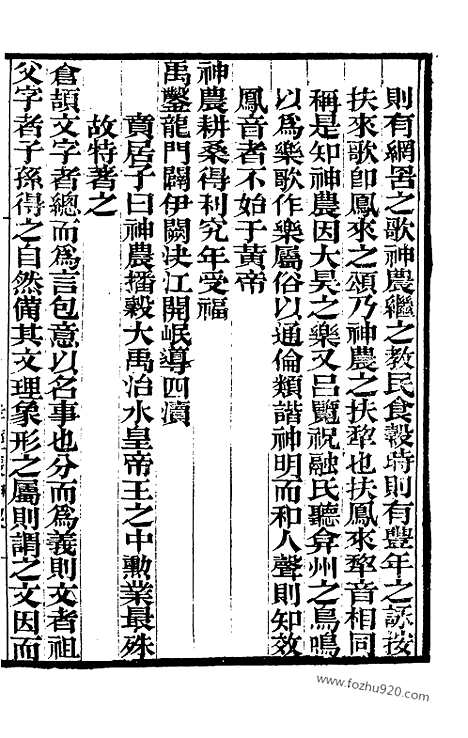 則有網罟之歌神農繼之教民食穀時則有豐年之詠按
扶來歌卽鳳來之頌乃神農之扶犂也扶鳳來犂音相同
稱是知神農因大昊之樂又呂覽祝融氏聽弇州之鳥鳴
以爲樂歌作樂屬俗以通倫類諧神明而和人聲則知效
鳳音者不始于黃帝
神農耕桑得利究年受福
禹鑿龍門闢伊闕決江開岷導四瀆
賁居子曰神農播穀大禹治水皇帝王之中勳業最殊
故特著之
倉頡文字者總而爲言包意以名事也分而爲義則文者祖
父字者子孫得之自然備其文理象形之屬則謂之文因而
www.fozhu920.com